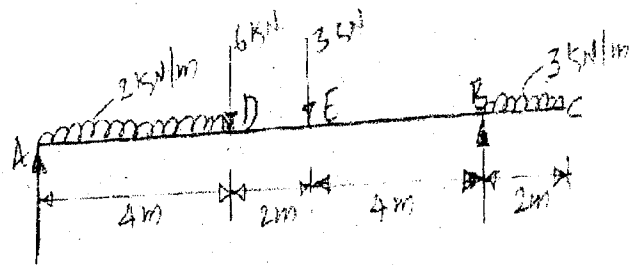 6 KN 3 KN
2 KN/m 3 KN/m
A D E B C
4 m 2 m 4 m 2 m